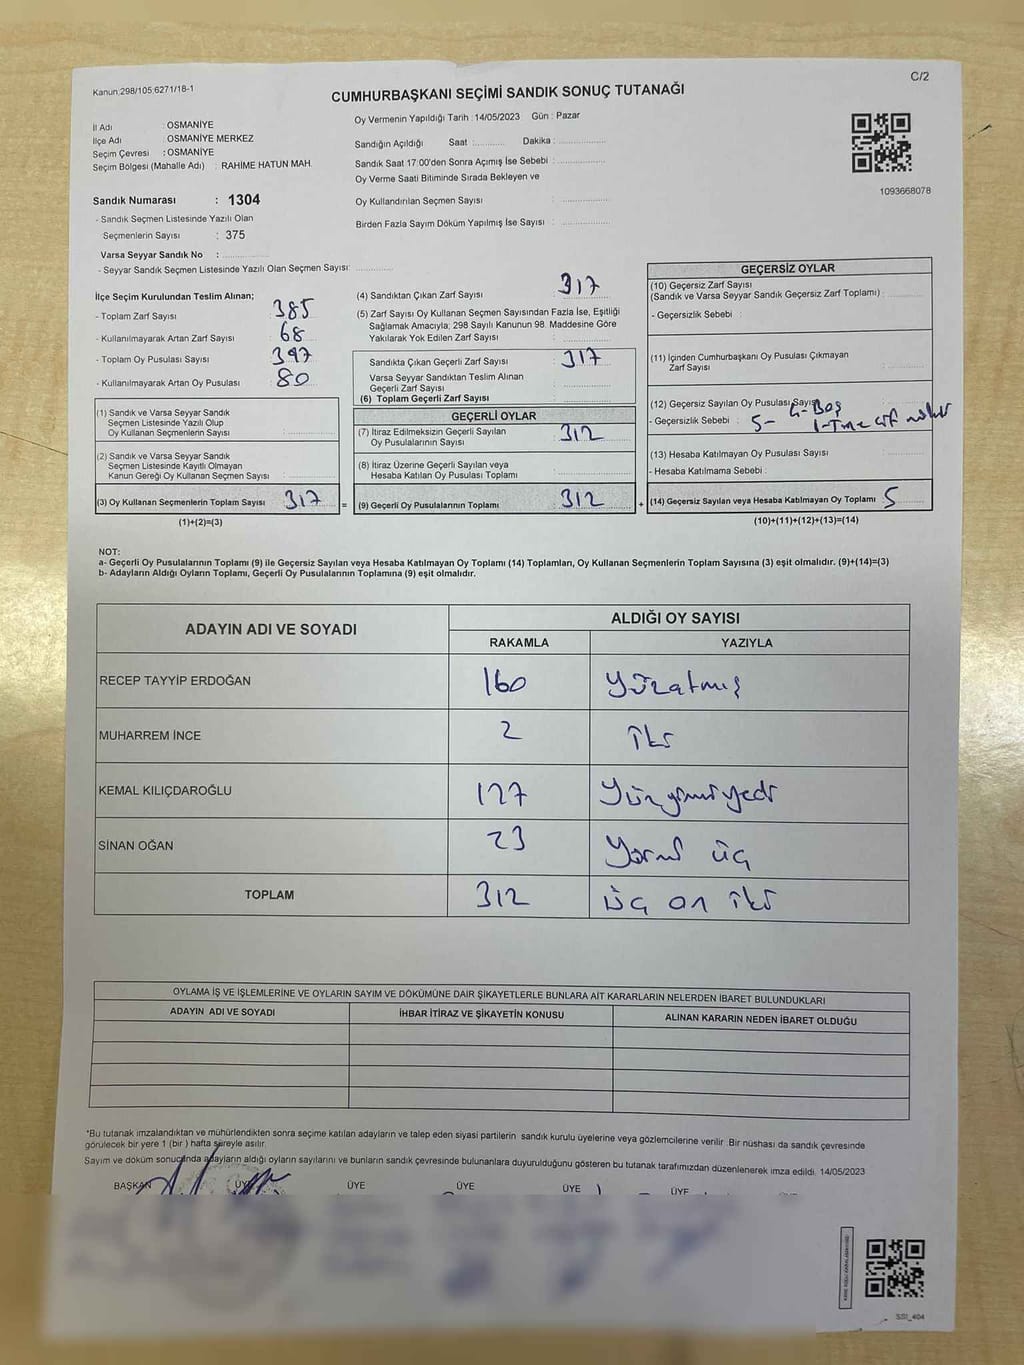 Kanun:298/105:6271/18-1
C/2
CUMHURBAŞKANI SEÇİMİ SANDIK SONUÇ TUTANAĞI
İl Adı : OSMANİYE
İlçe Adı : OSMANİYE MERKEZ
Seçim Çevresi : OSMANİYE
Seçim Bölgesi (Mahalle Adı) : RAHİME HATUN MAH.
Sandık Numarası : 1304
- Sandık Seçmen Listesinde Yazılı Olan
Seçmenlerin Sayısı : 375
Varsa Seyyar Sandık No : ............
- Seyyar Sandık Seçmen Listesinde Yazılı Olan Seçmen Sayısı: ............
Oy Vermenin Yapıldığı Tarih : 14/05/2023 Gün : Pazar
Sandığın Açıldığı Saat : ............ Dakika : ............
Sandık Saat 17:00'den Sonra Açımış İse Sebebi : ............
Oy Verme Saati Bitiminde Sırada Bekleyen ve
Oy Kullandırılan Seçmen Sayısı : ............
Birden Fazla Sayım Döküm Yapılmış İse Sayısı : ............
1093668078
İlçe Seçim Kurulundan Teslim Alınan;
- Toplam Zarf Sayısı : 385
- Kullanılmayarak Artan Zarf Sayısı : 68
- Toplam Oy Pusulası Sayısı : 397
- Kullanılmayarak Artan Oy Pusulası : 80
(1) Sandık ve Varsa Seyyar Sandık
Seçmen Listesinde Yazılı Olup
Oy Kullanan Seçmenlerin Sayısı :
(2) Sandık ve Varsa Seyyar Sandık
Seçmen Listesinde Kayıtlı Olmayan
Kanun Gereği Oy Kullanan Seçmen Sayısı :
(3) Oy Kullanan Seçmenlerin Toplam Sayısı : 317 =
(1)+(2)=(3)
(4) Sandıktan Çıkan Zarf Sayısı : 317
(5) Zarf Sayısı Oy Kullanan Seçmen Sayısından Fazla İse, Eşitliği
Sağlamak Amacıyla; 298 Sayılı Kanunun 98. Maddesine Göre
Yakılarak Yok Edilen Zarf Sayısı :
Sandıkta Çıkan Geçerli Zarf Sayısı : 317
Varsa Seyyar Sandıktan Teslim Alınan
Geçerli Zarf Sayısı :
(6) Toplam Geçerli Zarf Sayısı :
GEÇERLİ OYLAR
(7) İtiraz Edilmeksizin Geçerli Sayılan
Oy Pusulalarının Sayısı : 312
(8) İtiraz Üzerine Geçerli Sayılan veya
Hesaba Katılan Oy Pusulası Toplamı :
(9) Geçerli Oy Pusulalarının Toplamı : 312 +
GEÇERSİZ OYLAR
(10) Geçersiz Zarf Sayısı
(Sandık ve Varsa Seyyar Sandık Geçersiz Zarf Toplamı) :
- Geçersizlik Sebebi :
(11) İçinden Cumhurbaşkanı Oy Pusulası Çıkmayan
Zarf Sayısı :
(12) Geçersiz Sayılan Oy Pusulası Sayısı
- Geçersizlik Sebebi : 5- 4-Boş
(13) Hesaba Katılmayan Oy Pusulası Sayısı :
- Hesaba Katılmama Sebebi :
(14) Geçersiz Sayılan veya Hesaba Katılmayan Oy Toplamı : 5
(10)+(11)+(12)+(13)=(14)
NOT:
a- Geçerli Oy Pusulalarının Toplamı (9) ile Geçersiz Sayılan veya Hesaba Katılmayan Oy Toplamı (14) Toplamları, Oy Kullanan Seçmenlerin Toplam Sayısına (3) eşit olmalıdır. (9)+(14)=(3)
b- Adayların Aldığı Oyların Toplamı, Geçerli Oy Pusulalarının Toplamına (9) eşit olmalıdır.
ADAYIN ADI VE SOYADI
ALDIĞI OY SAYISI
RAKAMLA YAZIYLA
RECEP TAYYİP ERDOĞAN 160 Yüzatmış
MUHARREM İNCE 2 İki
KEMAL KILIÇDAROĞLU 127 Yüzyirmiyedi
SİNAN OĞAN 23 Yirmi üç
TOPLAM 312 üç on iki
OYLAMA İŞ VE İŞLEMLERİNE VE OYLARIN SAYIM VE DÖKÜMÜNE DAİR ŞİKAYETLERLE BUNLARA AİT KARARLARIN NELERDEN İBARET BULUNDUKLARI
ADAYIN ADI VE SOYADI İHBAR İTİRAZ VE ŞİKAYETİN KONUSU ALINAN KARARIN NEDEN İBARET OLDUĞU
*Bu tutanak imzalandıktan ve mühürlendikten sonra seçime katılan adayların ve talep eden siyasi partilerin sandık kurulu üyelerine veya gözlemcilerine verilir. Bir nüshası da sandık çevresinde
görülecek bir yere 1 (bir ) hafta süreyle asılır.
Sayım ve döküm sonucunda adayların aldığı oyların sayılarını ve bunların sandık çevresinde bulunanlara duyurulduğunu gösteren bu tutanak tarafımızdan düzenlenerek imza edildi. 14/05/2023
BAŞKAN ÜYE ÜYE ÜYE ÜYE ÜYE
SSI_404